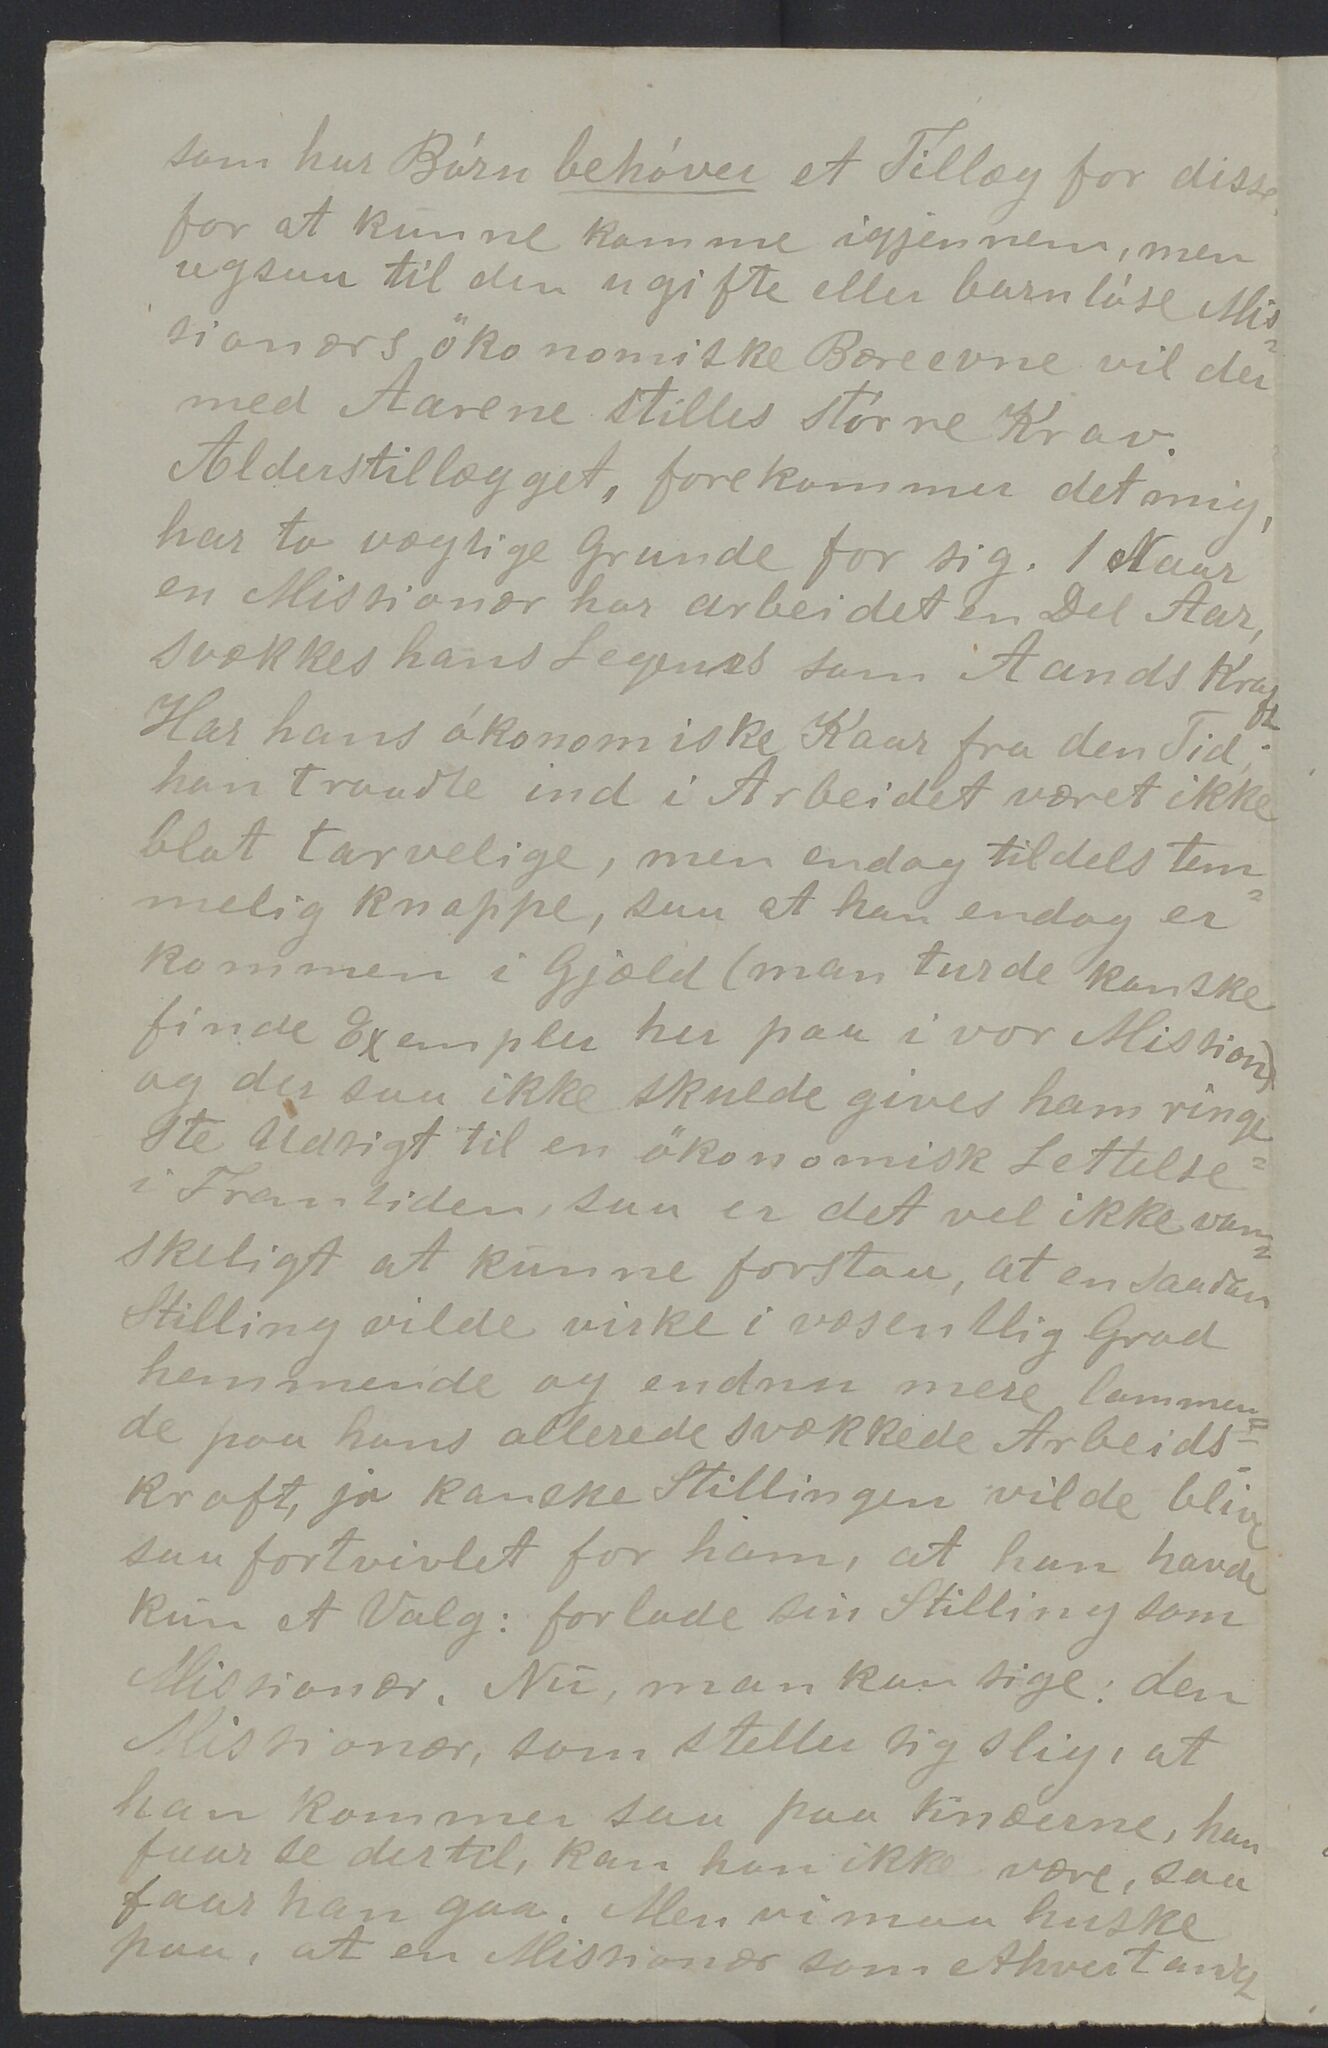 som har Börn behöver et Tillæg for disse,
for at kunne komme igjennem, men
ogsaa til den ugifte eller barnlöse Mis=
sionærs ökonomiske Bæreevne vil der
med Aarene stilles större Krav.
Alderstillægget, forekommer det mig,
har to vægtige Grunde for sig. 1 Naar
en Missionær har arbeidet en Del Aar,
svækkes hans Legems som Aands Kraft.
Har hans ökonomiske Kaar fra den Tid,
han traadte ind i Arbeidet været ikke
blot tarvelige, men endog tildels tem=
melig knappe, saa at han endog er
kommen i Gjæld (man turde kanske
finde Exempler her paa i vor Mission)
og der saa ikke skulde gives ham ringe=
ste Udsigt til en ökonomisk Lettelse
i Fremtiden, saa er det vel ikke van=
skeligt at kunne forstaa, at en saadan
Stilling vilde virke i væsentlig Grad
hemmende og endnu mere lammen=
de paa hans allerede svækkede Arbeids=
kraft, ja kanske Stillingen vilde blive
saa fortvivlet for ham, at han havde
kun et Valg: forlade sin Stilling som
Missionær. Nu, man kan sige: den
Missionær, som steller sig slig, at
han kommer saa paa Knæerne, han
faar se dertil, kan han ikke være, saa
faar han gaa. Men vi maa huske
paa, at en Missionær som ethvert andet